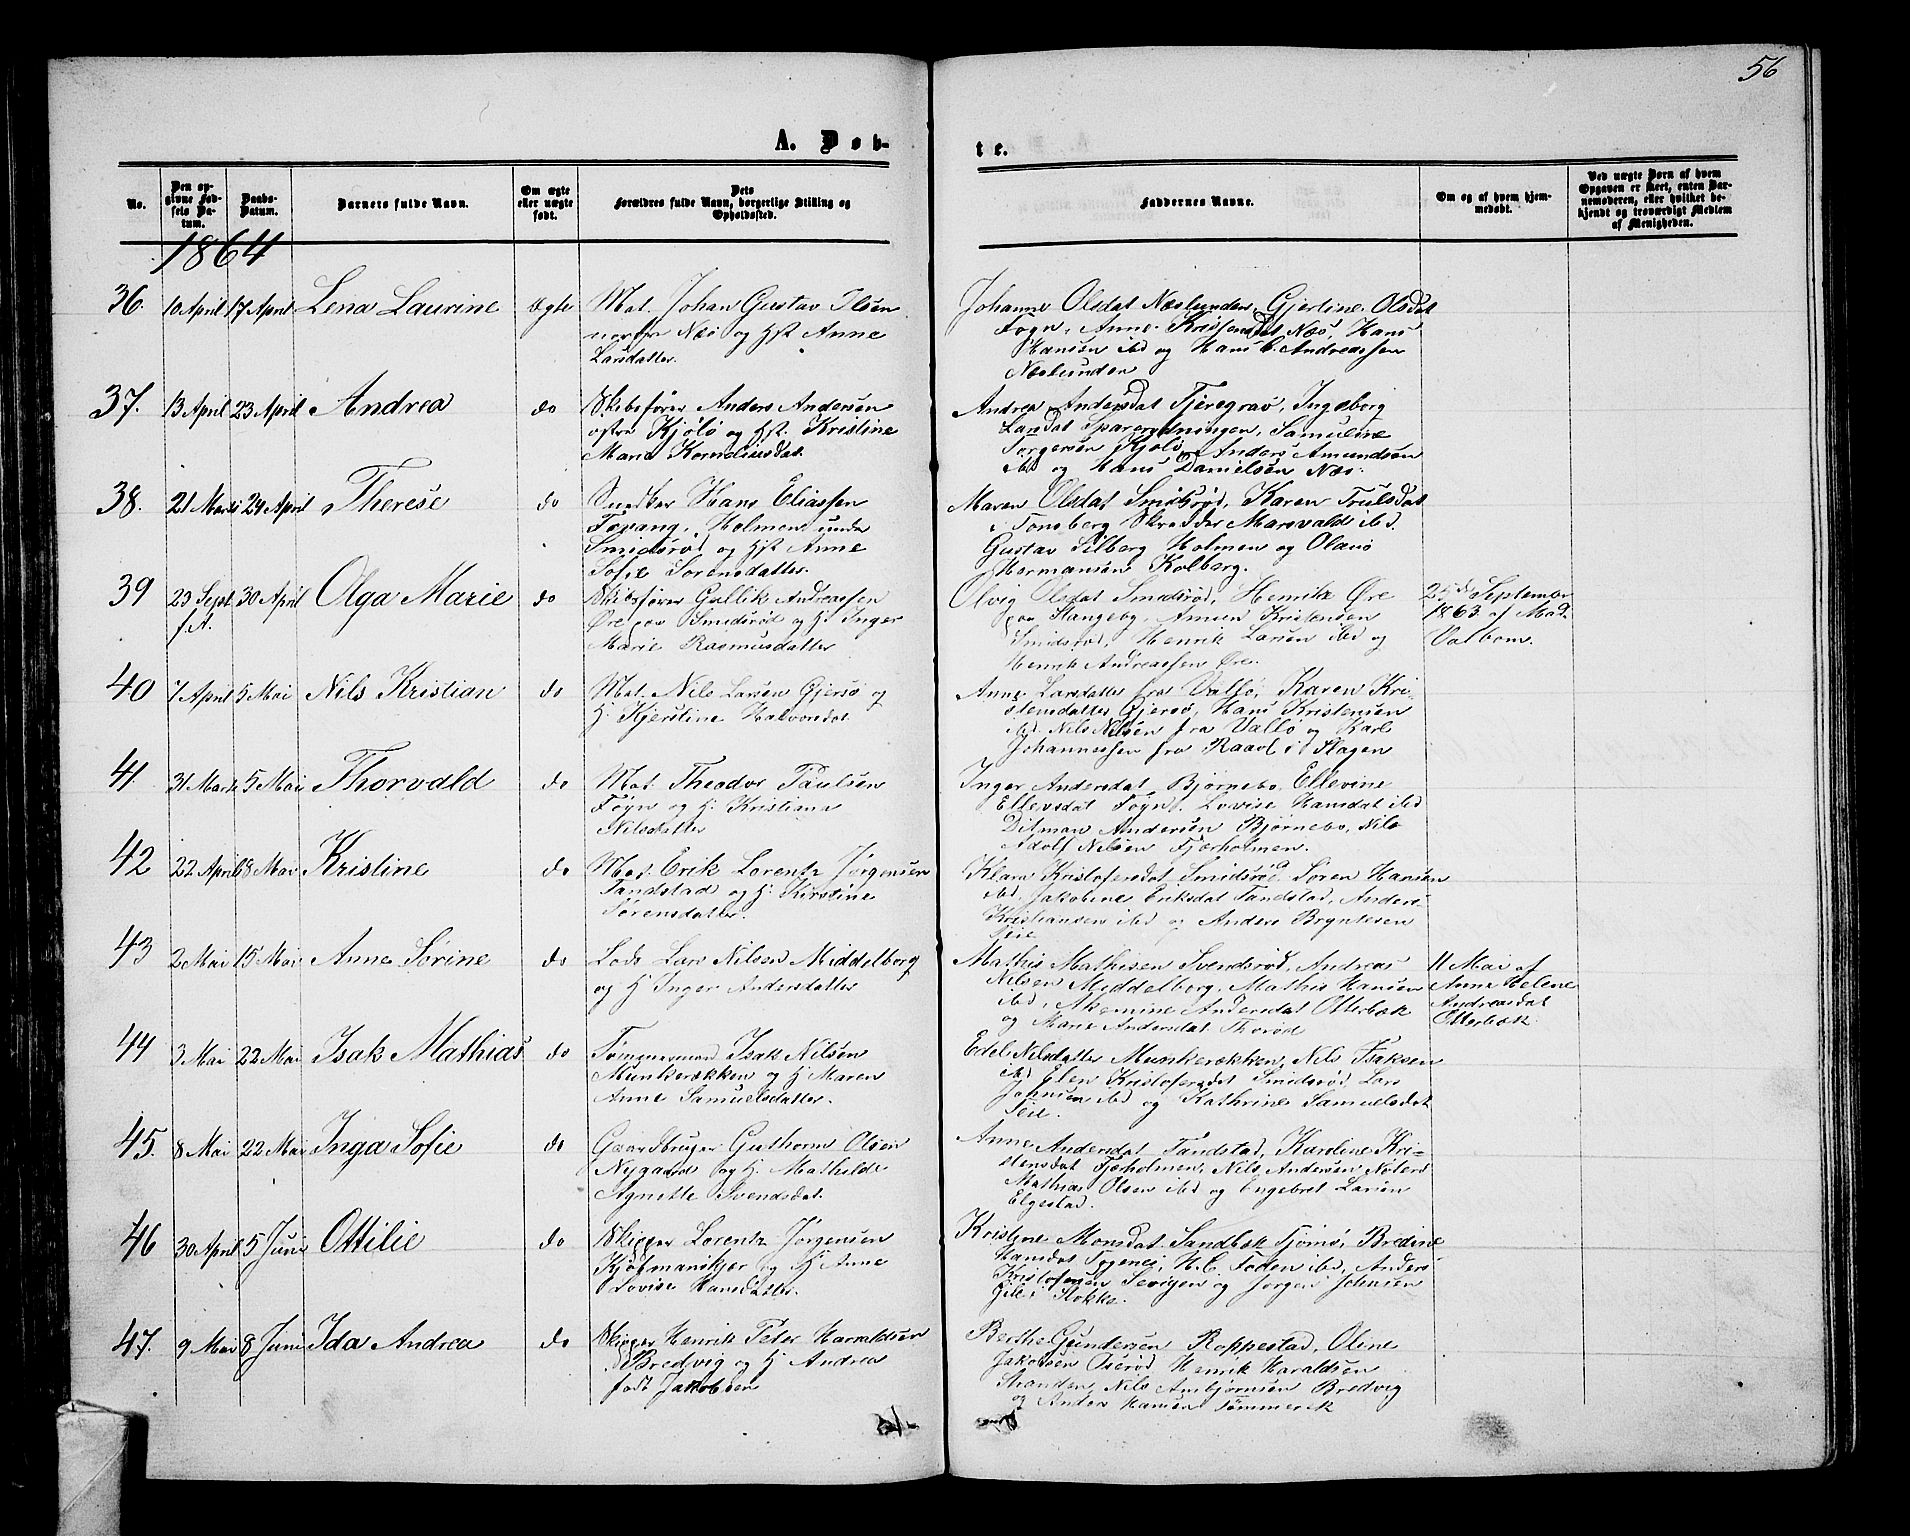 56
A. Døb-
te.
No.
Den op-
givne Fød-
sels Da-
tum.
Daabs-
Datum.
Barnets fulde Navn.
Om ægte
eller uægte
født.
Dets
Forældres fulde Navn, borgerlige Stilling og
Opholdssted.
Faddernes Navne.
Om og af hvem hjem-
medøbt.
Ved uægte Børn af hvem
Opgaven er skeet, enten Bar-
nemoderen, eller hvilket be-
kjendt og troværdigt Medlem
af Menigheden.
1864
36. 10 April 17 April Lena Laurine Ægte Mat. Johan Gustav Olsen
Næs og Hst Anne
Larsdatter.
Johanne Olsdat Næslunden, Gjertine Olsdat
Fogn, Anne Kristensdat Næs, Hans
Hansen ibd og Hans C. Andreassen
Næslunden
37. 13 April 23 April Andrea do Skibsfører Anders Andersen
østre Kjølø og Hst. Kristine
Marie Korneliusdat.
Andrea Andersdat Fjeregraø, Ingeborg
Larsdat Sparerdningen, Samuline
Torgersen Kjølø, Anders Amundsen
ibd og Hans Danielsen Næs.
38. 21 Marts 24 April Therese do Snedker Hans Eliassen
Føyang, Holmen under
Smidsrød og Hst Anne
Sofie Sorensdatter.
Maren Olsdat Smidsrød, Karen Trulsdat
i Tønsberg Skrædder Marsvald ibd.
Gustav Silberg Holmen og Olaus
Hermansen Kolberg.
39 23 Sept 30 April Olga Marie do Skibsfører Gullik Andreassen
f. A.
Øre paa Smidsrød og H. Inger
Marie Rasmusdatter
Olvig Olsdat Smidsrød, Henrik Øre
paa Slangeby, Amien Kristensen
Smidsrød, Henrik Larsen ibd og
Henrik Andreassen Øre.
25de September
1863 af Mad.
Valbom.
40 7 April 5 Mai Nils Kristian do Mat. Nils Larsen Gjersø og
H. Kjerstine Halvorsdat
Anne Larsdatter fra Vallø, Karen Kri-
stensdatter Gjersø, Hans Kristensen
ibd. Nils Nilsen fra Vallø og Karl
Johannessen fra Raael i Slagen
41 31 Marts 5 Mai Thorvald do Mat. Theodor Paulsen
Føyn og H. Kristiana
Nilsdatter
Inger Andersdat Bjørnebo, Ellevine
Ellevsdat Fogn, Lovise Hansdat ibd
Ditman Andersen Bjørnebo, Nils
Adolf Nilsen Fjærholmen.
42 22 April 8 Mai Kristine do Mat. Erik Lorentz Jørgensen
Tandstad og H. Kirstine
Sørensdatter.
Klara Kristofersdat Smidsrød, Søren Hansen
ibd, Jakobine Eriksdat Tandstad, Anders
Kristiansen ibd og Anders Bryntesen
Seie
43 2 Mai 15 Mai Anna Sørine do Lods Lars Nilsen Middelborg
og H Inger Andersdatter
Mathis Mathisen Svendsrød, Andreas
Nilsen Middelborg, Mathis Hansen
ibd, Andersdat Otterbæk
og Marie Andersdat Thorød
11 Mai af
Anne Helene
Andreasdat
Otterbæk.
44 3 Mai 22 Mai Isak Mathias do Tømmermand Isak Nilsen
Munkerækken og H. Maren
Anne Samuelsdatter.
Edel Nilsdatter Munkerækken, Nils Isaksen
ibd Elen Kristofersdat Smidsrød, Lars
Johnsen ibd og Kathrine Samuelsdat
Seie.
45. 8 Mai 22 Mai Inga Sofie do Gaardbruger Guthorm Olsen
Nygaard og H. Mathilde
Agnette Svendsdat.
Anne Andersdat Tandstad, Karoline Kri-
stensdat Fjærholmen, Nils Andersen Nøterø
Mathias Olsen ibd og Engebret Larsen
Elgestad.
46 30 April 5 Juni Ottilie do Skipper Lorentz Jørgensen
Kjøbmanskjær og H Anne
Lovise Hansdatter.
Kristine Monsdat Sandbæk Tjømø, Bredine
Hansdat Tegenæs, H. C. Foden ibd, Anders
Kristofersen og Jørgen Johnsen
Gile i Stokke.
47. 9 Mai 8 Juni Ida Andrea do Skipper Henrik Peter Haraldsen
Bredvig og H. Andrea
født Jakobsen
Berthe Gundersen Roppestad, Oline
Jakobsen Henrik Haraldsen
Stranden, Nils Ambjørnsen Bredvig
og Anders Hansen Tømmerek